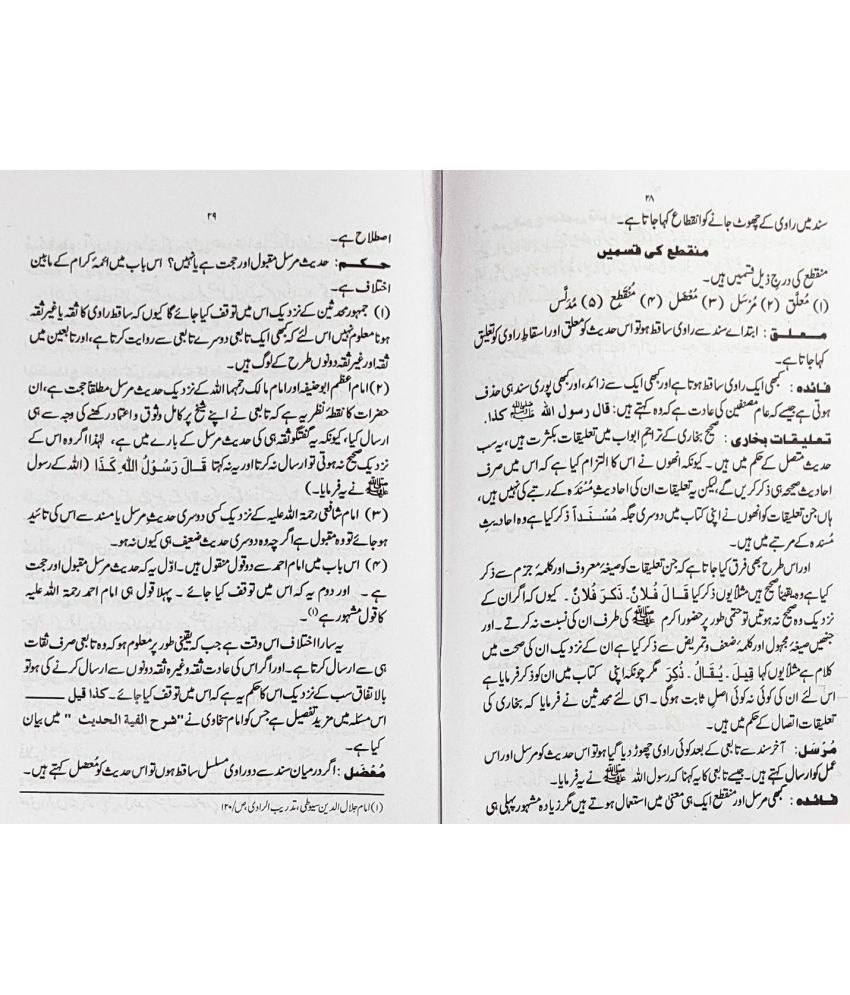 ۲۸
سند میں راوی کے چھوٹ جانے کو انقطاع کہا جاتا ہے۔
منقطع کی قسمیں
منقطع کی درج ذیل قسمیں ہیں۔
(۱) مُعلّق (۲) مُرسَل (۳) مُعضَل (۴) مُنقَطع (۵) مُدلَّس
معلق : ابتداے سند سے راوی ساقط ہو تو اس حدیث کو معلق اور اسقاطِ راوی کو تعلیق
کہا جاتا ہے۔
فائدہ : کبھی ایک راوی ساقط ہوتا ہے اور کبھی ایک سے زائد، اور کبھی پوری سند ہی حذف
ہوتی ہے جیسے کہ عام مصنفین کی عادت ہے کہ وہ کہتے ہیں: قال رسول الله ﷺ كذا.
تعلیقات بخاری : صحیح بخاری کے تراجم ابواب میں تعلیقات بکثرت ہیں، یہ سب
حدیث متصل کے حکم میں ہیں۔ کیونکہ انھوں نے اس کا التزام کیا ہے کہ اس میں صرف
احادیث صحیحہ ہی ذکر کریں گے، لیکن یہ تعلیقات ان کی احادیثِ مُسندَہ کے رتبے کی نہیں ہیں،
ہاں جن تعلیقات کو انھوں نے اپنی کتاب میں دوسری جگہ مُسنَداً ذکر کیا ہے وہ احادیثِ
مُسندہ کے مرتبے میں ہیں۔
اور اس طرح بھی فرق کیا جاتا ہے کہ جن تعلیقات کو صیغۂ معروف اور کلمۂ جزم سے ذکر
کیا ہے وہ یقیناً صحیح ہیں مثلاً یوں ذکر کیا قَالَ فُلَانٌ۔ ذَكَرَ فُلَانٌ۔ کیوں کہ اگر ان کے
نزدیک وہ صحیح نہ ہوتیں تو حتمی طور پر حضور اکرم ﷺ کی طرف ان کی نسبت نہ کرتے۔ اور
جنھیں صیغۂ مجہول اور کلمۂ ضعف و تمریض سے ذکر کیا ہے ان کے نزدیک ان کی صحت میں
کلام ہے مثلاً یوں کہا قِيلَ۔ يُقَالُ۔ ذُكِرَ مگر چونکہ اپنی کتاب میں ان کو ذکر فرمایا ہے
اس لئے ان کی کوئی نہ کوئی اصل ثابت ہوگی۔ اسی لئے محدثین نے فرمایا کہ بخاری کی
تعلیقات اتصال کے حکم میں ہیں۔
مُرسَل: آخر سند سے تابعی کے بعد کوئی راوی چھوڑ دیا گیا ہو تو اس حدیث کو مرسل اور اس
عمل کو ارسال کہتے ہیں۔ جیسے تابعی کا یہ کہنا کہ رسول اللہ ﷺ نے یہ فرمایا۔
فائدہ : کبھی مرسل اور منقطع ایک ہی معنی میں استعمال ہوتے ہیں مگر زیادہ مشہور پہلی ہی
۲۹
اصطلاح ہے۔
حکم : حدیث مرسل مقبول اور حجت ہے یا نہیں؟ اس باب میں ائمۂ کرام کے مابین
اختلاف ہے۔
(۱) جمہور محدثین کے نزدیک اس میں توقف کیا جائے گا کیوں کہ ساقط راوی کا ثقہ یا غیر ثقہ
ہونا معلوم نہیں اس لئے کہ کبھی ایک تابعی دوسرے تابعی سے روایت کرتا ہے، اور تابعین میں
ثقہ اور غیر ثقہ دونوں طرح کے لوگ ہیں۔
(۲) امام اعظم ابو حنیفہ اور امام مالک رحمہما اللہ کے نزدیک حدیث مرسل مطلقا حجت ہے، ان
حضرات کا نقطۂ نظر یہ ہے کہ تابعی نے اپنے شیخ پر کامل وثوق و اعتماد رکھنے کی وجہ سے ہی
ارسال کیا، کیونکہ یہ گفتگو ثقہ ہی کی حدیث مرسل کے بارے میں ہے، لہٰذا اگر وہ اس کے
نزدیک صحیح نہ ہوتی تو ارسال نہ کرتا اور یہ نہ کہتا قَالَ رَسُوْلُ اللهِ كَذَا (اللہ کے رسول
ﷺ نے یہ فرمایا۔)
(۳) امام شافعی رحمۃ اللہ علیہ کے نزدیک کسی دوسری حدیثِ مرسل یا مسند سے اس کی تائید
ہو جائے تو وہ مقبول ہے اگرچہ وہ دوسری حدیث ضعیف ہی کیوں نہ ہو۔
(۴) اس باب میں امام احمد سے دو قول منقول ہیں۔ اوّل یہ کہ حدیث مرسل مقبول اور حجت
ہے۔ اور دوم یہ کہ اس میں توقف کیا جائے۔ پہلا قول ہی امام احمد رحمۃ اللہ علیہ
کا قول مشہور ہے(۱)۔
یہ سارا اختلاف اس وقت ہے جب کہ یقینی طور پر معلوم ہو کہ وہ تابعی صرف ثقات
ہی سے ارسال کرتا ہے۔ اور اگر اس کی عادت ثقہ و غیر ثقہ دونوں سے ارسال کرنے کی ہو تو
بالاتفاق سب کے نزدیک اس کا حکم یہ ہے کہ اس میں توقف کیا جائے۔ كذا قيل ــــــ
اس مسئلہ میں مزید تفصیل ہے جس کو امام سخاوی نے "شرح الفیة الحدیث" میں بیان
کیا ہے۔
مُعْضَل : اگر درمیان سند سے دو راوی مسلسل ساقط ہوں تو اس حدیث کو مُعضل کہتے ہیں۔
(۱) امام جلال الدین سیوطی، تدریب الراوی، ص/۱۲۰